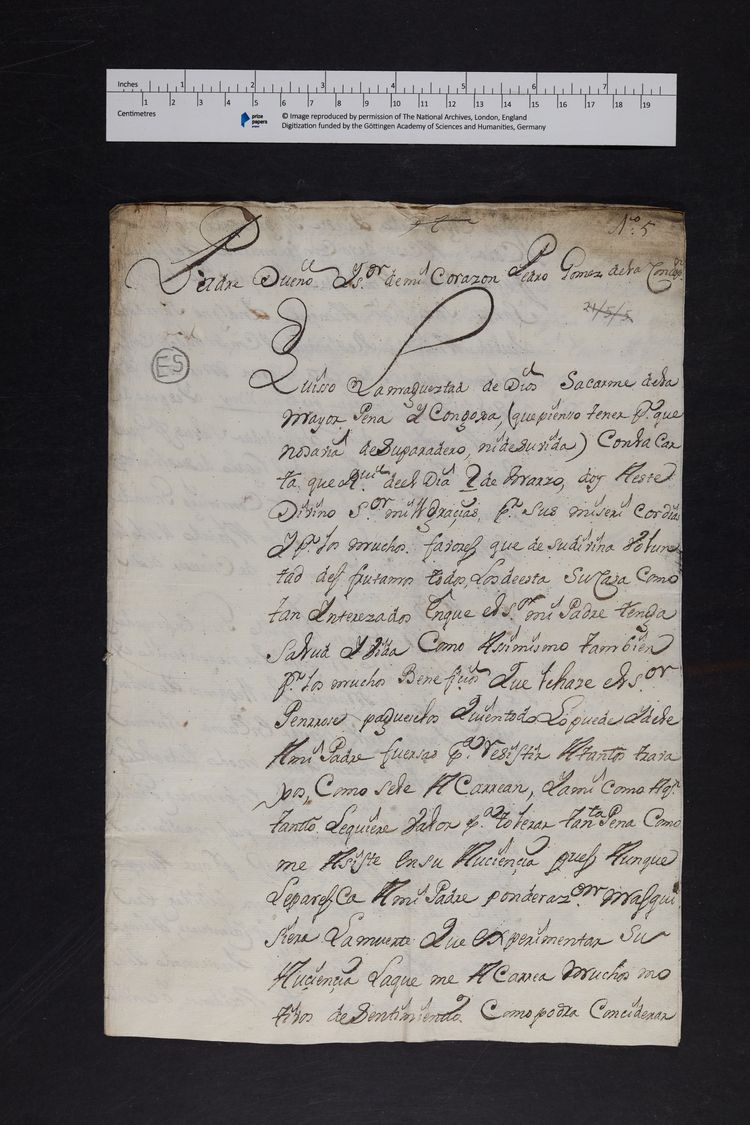 Inches 1 2 3 4 5 6 7
1 2 3 4 5 6 7 8 9 10 11 12 13 14 15 16 17 18 19
Centimetres
prize papers
© Image reproduced by permission of The National Archives, London, England
Digitization funded by the Göttingen Academy of Sciences and Humanities, Germany
No. 5
Padre Dueño y s.or de mi Corazon Pedro Gomez dela
21/5/5
ES
Quisso La magestad de Dios Sacarme dela
mayor Pena y Congoxa, (que pienzo tener pr. que
no savia de Suparadero, nide suvida) Con la Car
ta que del Dia 2 de Marzo, doy A este
Divino s.or mil gracias, pr. sus miseri cordias
y pr. los muchos favores que de sudivina Volun
tad des frutamos todos, Los de esta Su Caza Como
tan Ynterezados Enque el s.or mi Padre tenga
Salud y Vida Como Asimismo tambien
pr. los muchos Benefisios Que le haze el s.or
Penrrose pagueselos Dios Lo puede y dele
A mi Padre fuersas pa. resistir A tantos trava
xos, Como sele A Carrean, y ami Como
tanto Requiere Valor pa. tolerar tanta Pena Como
me Asiste En su Auciencia pues Aunque
Leparesca A mi Padre ponderazon. mas qui
siera La muerte Que experimentar Su
Aucencia Laque me A Carrea muchos mo
tivos de Sentimiento. Como podra Conciderar